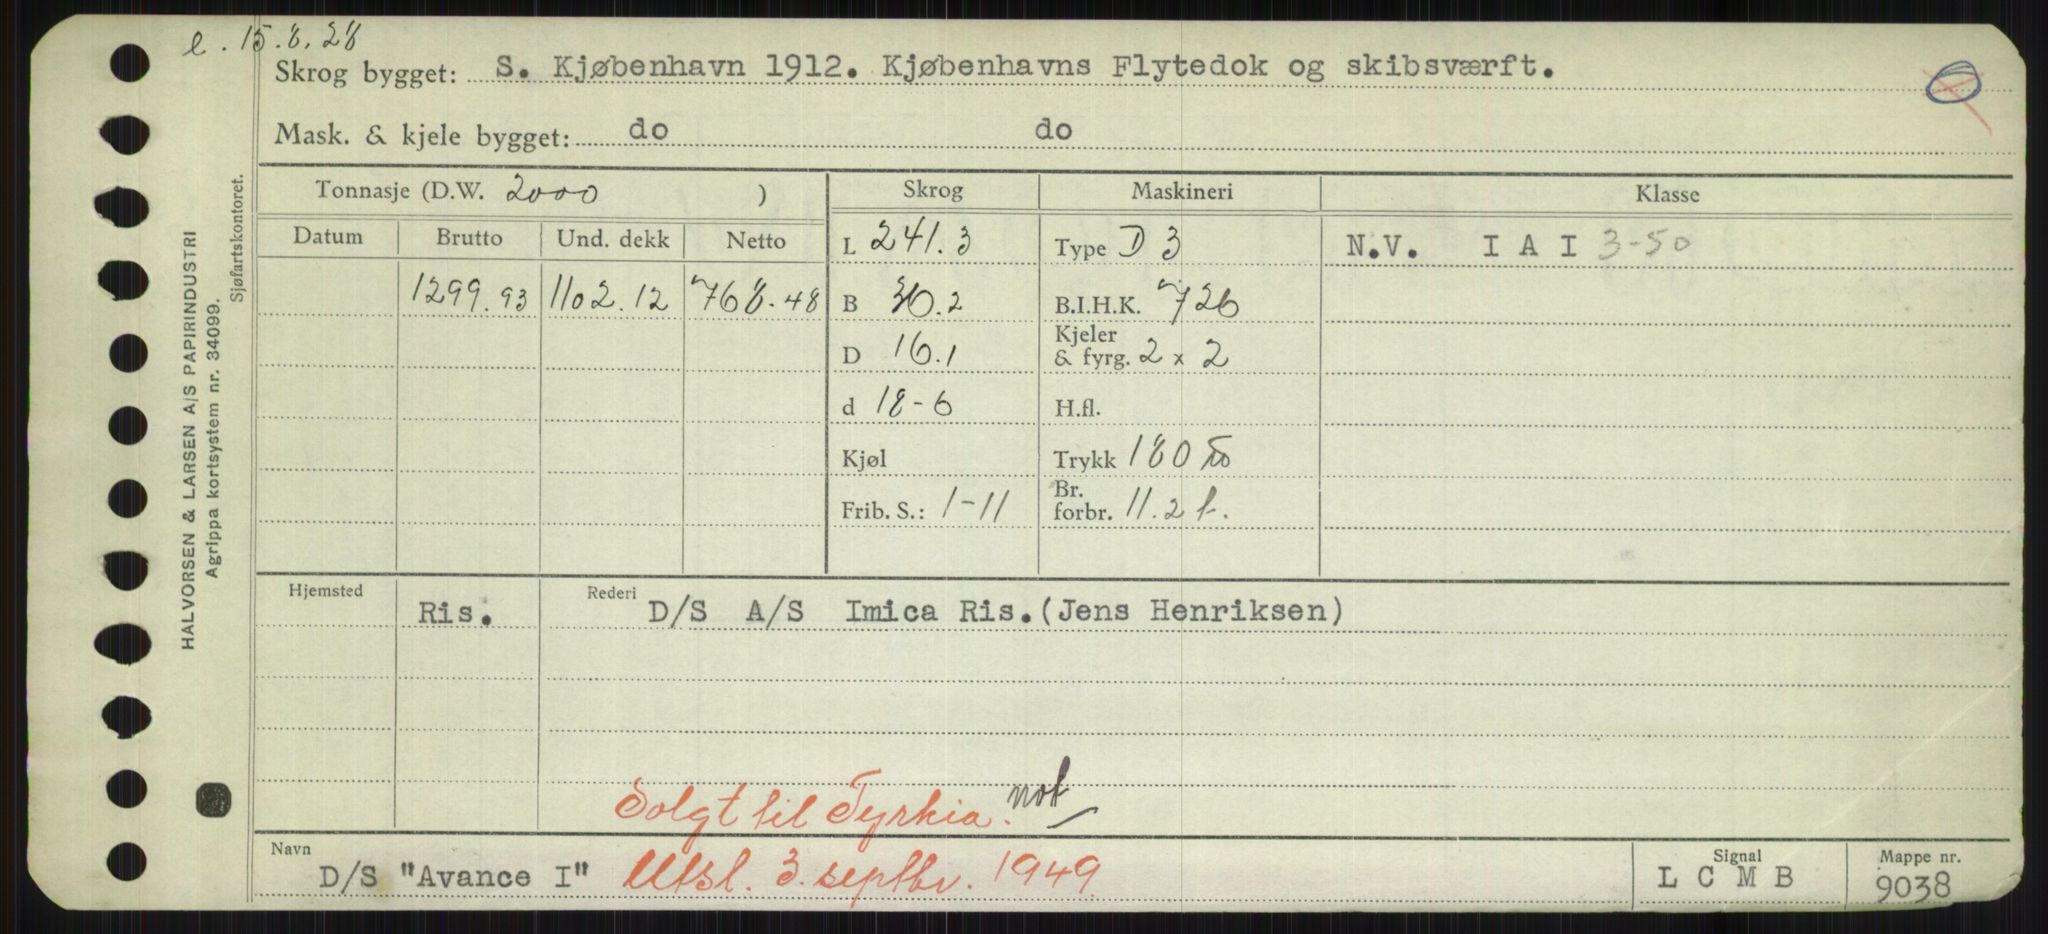 e. 15.8.28
Skrog bygget: S. Kjøbenhavn 1912. Kjøbenhavns Flytedok og skibsværft.
Mask. & kjele bygget: do do
Tonnasje (D.W. 2000 ) Skrog Maskineri Klasse
Datum Brutto Und. dekk Netto L 241.3 Type D 3 N.V. I A I 3-50
1299.93 1102.12 768.48 B 36.2 B.I.H.K. 726
D 16.1 Kjeler & fyrg. 2 x 2
d 18-6 H.fl.
Kjøl Trykk 180
Frib. S.: 1-11 Br. forbr. 11.2 t.
Hjemsted Ris. Rederi D/S A/S Imica Ris.(Jens Henriksen)
Solgt til Tyrkia. not
Navn D/S "Avance I" Utsl. 3. septbr. 1949 Signal L C M B Mappe nr. 9038
HALVORSEN & LARSEN A/S PAPIRINDUSTRI
Agrippa kortsystem nr. 34099.
Sjøfartskontoret.